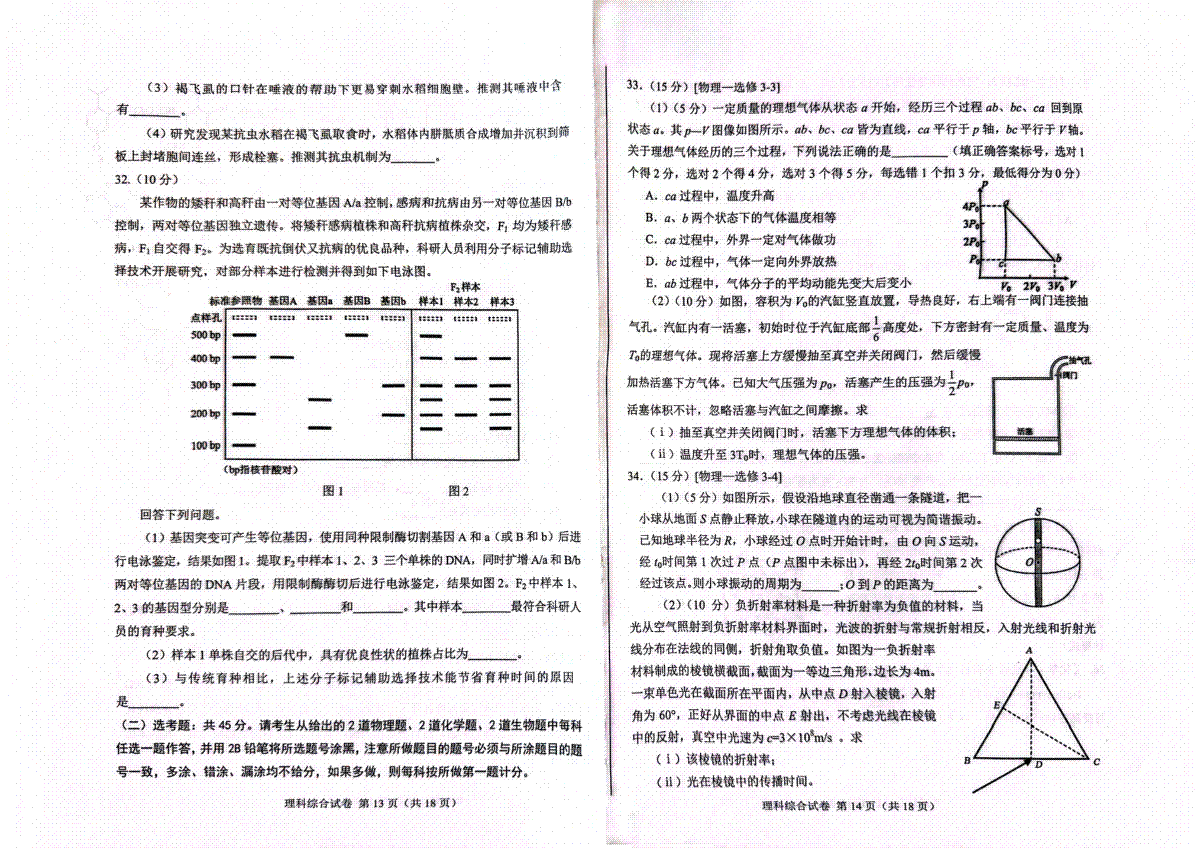 （3）褐飞虱的口针在唾液的帮助下更易穿刺水稻细胞壁。推测其唾液中含
有________。
（4）研究发现某抗虫水稻在褐飞虱取食时，水稻体内胼胝质合成增加并沉积到筛
板上封堵胞间连丝，形成栓塞。推测其抗虫机制为________。
32.（10分）
某作物的矮秆和高秆由一对等位基因 A/a 控制，感病和抗病由另一对等位基因 B/b
控制，两对等位基因独立遗传。将矮秆感病植株和高秆抗病植株杂交，F₁ 均为矮秆感
病，F₁ 自交得 F₂。为选育既抗倒伏又抗病的优良品种，科研人员利用分子标记辅助选
择技术开展研究，对部分样本进行检测并得到如下电泳图。
F₂样本
标准参照物 基因A 基因a 基因B 基因b 样本1 样本2 样本3
点样孔
500 bp
400 bp
300 bp
200 bp
100 bp
（bp指核苷酸对）
图1
图2
回答下列问题。
（1）基因突变可产生等位基因，使用同种限制酶切割基因 A 和 a（或 B 和 b）后进
行电泳鉴定，结果如图 1。提取 F₂ 中样本 1、2、3 三个单株的DNA，同时扩增 A/a 和 B/b
两对等位基因的 DNA 片段，用限制酶酶切后进行电泳鉴定，结果如图 2。F₂ 中样本 1、
2、3 的基因型分别是________、________和________。其中样本________最符合科研人
员的育种要求。
（2）样本 1 单株自交的后代中，具有优良性状的植株占比为________。
（3）与传统育种相比，上述分子标记辅助选择技术能节省育种时间的原因
是________。
（二）选考题：共 45 分。请考生从给出的 2 道物理题、2 道化学题、2 道生物题中每科
任选一题作答，并用 2B 铅笔将所选题号涂黑，注意所做题目的题号必须与所涂题目的题
号一致，多涂、错涂、漏涂均不给分，如果多做，则每科按所做第一题计分。
理科综合试卷 第 13 页（共 18 页）
33.（15 分）[物理—选修 3-3]
（1）（5 分）一定质量的理想气体从状态 a 开始，经历三个过程 ab、bc、ca 回到原
状态 a。其 p—V 图像如图所示。ab、bc、ca 皆为直线，ca 平行于 p 轴，bc 平行于 V 轴。
关于理想气体经历的三个过程，下列说法正确的是________（填正确答案标号，选对 1
个得 2 分，选对 2 个得 4 分，选对 3 个得 5 分，每选错 1 个扣 3 分，最低得分为 0 分）
A．ca 过程中，温度升高
B．a、b 两个状态下的气体温度相等
C．ca 过程中，外界一定对气体做功
D．bc 过程中，气体一定向外界放热
E．ab 过程中，气体分子的平均动能先变大后变小
p
4P₀
3P₀
2P₀
P₀
a
c
b
V₀ 2V₀ 3V₀ V
（2）（10 分）如图，容积为 V₀的汽缸竖直放置，导热良好，右上端有一阀门连接抽
气孔。汽缸内有一活塞，初始时位于汽缸底部 1/6 高度处，下方密封有一定质量、温度为
T₀的理想气体。现将活塞上方缓慢抽至真空并关闭阀门，然后缓慢
加热活塞下方气体。已知大气压强为 p₀，活塞产生的压强为 1/2 p₀，
活塞体积不计，忽略活塞与汽缸之间摩擦。求
（ⅰ）抽至真空并关闭阀门时，活塞下方理想气体的体积；
（ⅱ）温度升至 3T₀时，理想气体的压强。
抽气孔
阀门
活塞
34.（15 分）[物理—选修 3-4]
（1）（5 分）如图所示，假设沿地球直径凿通一条隧道，把一
小球从地面 S 点静止释放，小球在隧道内的运动可视为简谐振动。
已知地球半径为 R，小球经过 O 点时开始计时，由 O 向 S 运动，
经 t₀时间第 1 次过 P 点（P 点图中未标出），再经 2t₀时间第 2 次
经过该点。则小球振动的周期为______；O 到 P 的距离为______。
S
O
（2）（10 分）负折射率材料是一种折射率为负值的材料，当
光从空气照射到负折射率材料界面时，光波的折射与常规折射相反，入射光线和折射光
线分布在法线的同侧，折射角取负值。如图为一负折射率
材料制成的棱镜横截面，截面为一等边三角形，边长为 4m。
一束单色光在截面所在平面内，从中点 D 射入棱镜，入射
角为 60°，正好从界面的中点 E 射出，不考虑光线在棱镜
中的反射，真空中光速为 c=3×10⁸m/s 。求
（ⅰ）该棱镜的折射率；
（ⅱ）光在棱镜中的传播时间。
A
E
B
D
C
理科综合试卷 第 14 页（共 18 页）